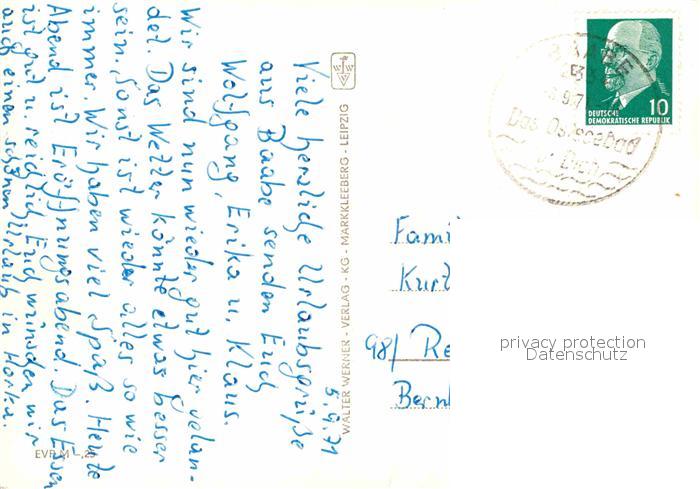 5.9.71
Viele herzliche Urlaubsgrüße
aus Baabe senden Euch
Wolfgang, Erika u. Klaus.
Wir sind nun wieder gut hier gelan-
det. Das Wetter könnte etwas besser
sein. Sonst ist wieder alles so wie
immer. Wir haben viel Spaß. Heute
Abend ist Eröffnungsabend. Das Essen
ist gut u. reichlich. Euch wünschen wir
auch einen schönen Urlaub in Horka.
EVP M -,25
WALTER WERNER - VERLAG - KG - MARKKLEEBERG - LEIPZIG
BAABE
9.7
Das Ostseebad
DEUTSCHE
DEMOKRATISCHE REPUBLIK
10
Fami
Kurt
98/ Re
Bern
privacy protection
Datenschutz